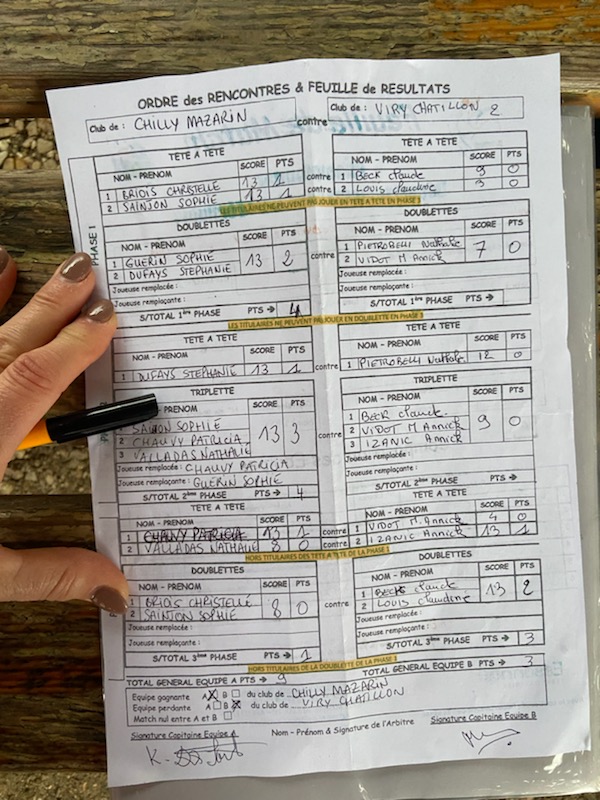 ORDRE des RENCONTRES & FEUILLE de RESULTATS
Club de : CHILLY MAZARIN contre Club de : VIRY CHATILLON 2
PHASE 1
TETE A TETE
NOM - PRENOM SCORE PTS
1 BRIOIS CHRISTELLE 13 1
2 SAINJON SOPHIE 13 1
contre
contre
TETE A TETE
NOM - PRENOM SCORE PTS
1 BECK Claude 9 0
2 LOUIS Claudine 3 0
LES TITULAIRES NE PEUVENT PAS JOUER EN TETE A TETE EN PHASE 3
DOUBLETTES
NOM - PRENOM SCORE PTS
1 GUERIN SOPHIE
2 DUFAYS STEPHANIE 13 2
Joueuse remplacée :
Joueuse remplaçante :
S/TOTAL 1ère PHASE PTS → 4
contre
DOUBLETTES
NOM - PRENOM SCORE PTS
1 PIETROBELLI Nathalie
2 VIDOT M Annick 7 0
Joueuse remplacée :
Joueuse remplaçante :
S/TOTAL 1ère PHASE PTS →
LES TITULAIRES NE PEUVENT PAS JOUER EN DOUBLETTE EN PHASE 3
TETE A TETE
NOM - PRENOM SCORE PTS
1 DUFAYS STEPHANIE 13 1
contre
TETE A TETE
NOM - PRENOM SCORE PTS
1 PIETROBELLI Nathalie 12 0
TRIPLETTE
- PRENOM SCORE PTS
SAINJON SOPHIE
2 CHAUVY PATRICIA 13 3
3 VALLADAS NATHALIE
Joueuse remplacée : CHAUVY PATRICIA
Joueuse remplaçante : GUERIN SOPHIE
S/TOTAL 2ème PHASE PTS → 4
contre
TRIPLETTE
NOM - PRENOM SCORE PTS
1 BECK Claude
2 VIDOT M Annick 9 0
3 IZANIC Annick
Joueuse remplacée :
Joueuse remplaçante :
S/TOTAL 2ème PHASE PTS →
TETE A TETE
NOM - PRENOM SCORE PTS
1 CHAUVY PATRICIA 13 1
2 VALLADAS NATHALIE 8 0
contre
contre
TETE A TETE
NOM - PRENOM SCORE PTS
1 VIDOT M. Annick 4 0
2 IZANIC Annick 13 1
HORS TITULAIRES DES TETE A TETE DE LA PHASE 1
DOUBLETTES
NOM - PRENOM SCORE PTS
1 BRIOIS CHRISTELLE
2 SAINJON SOPHIE 8 0
Joueuse remplacée :
Joueuse remplaçante :
S/TOTAL 3ème PHASE PTS → 1
contre
DOUBLETTES
NOM - PRENOM SCORE PTS
1 BECK Claude
2 LOUIS Claudine 13 2
Joueuse remplacée :
Joueuse remplaçante :
S/TOTAL 3ème PHASE PTS → 3
HORS TITULAIRES DE LA DOUBLETTE DE LA PHASE 1
TOTAL GENERAL EQUIPE A PTS → 9
TOTAL GENERAL EQUIPE B PTS → 3
Equipe gagnante A B du club de CHILLY MAZARIN
Equipe perdante A B du club de VIRY CHATILLON
Match nul entre A et B
Signature Capitaine Equipe A Nom - Prénom & Signature de l'Arbitre Signature Capitaine Equipe B